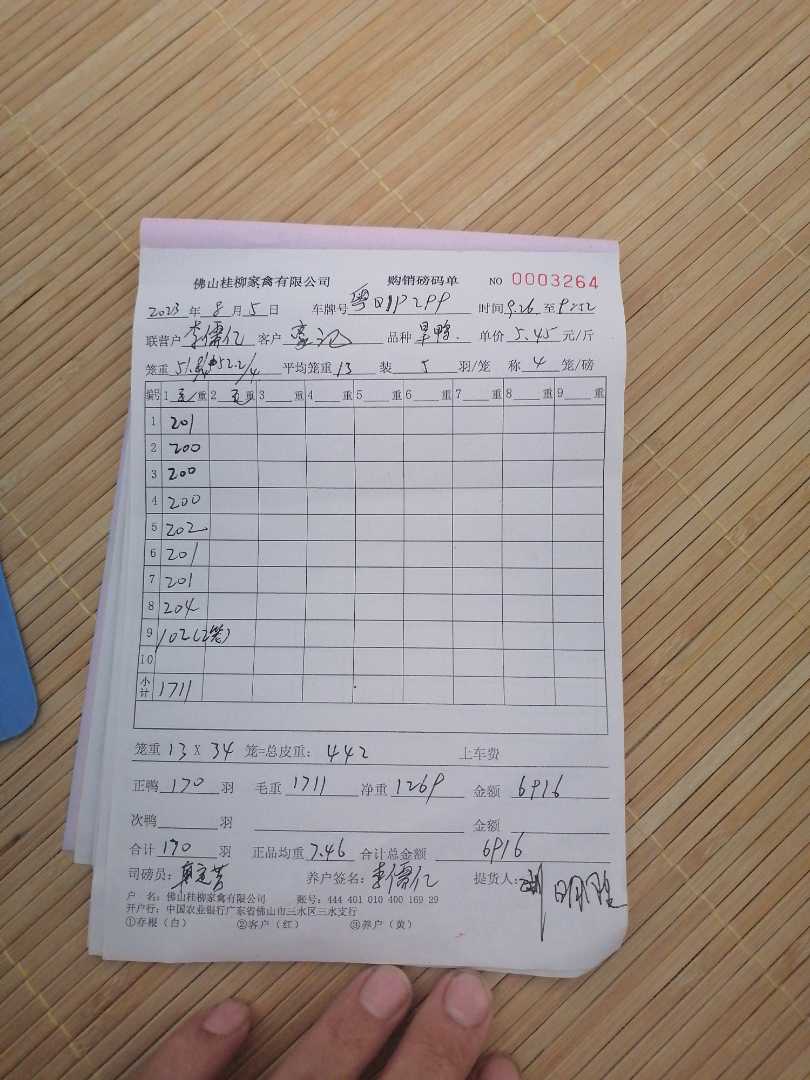 佛山桂柳家禽有限公司 购销磅码单 NO 0003264
2023 年 8 月 5 日 车牌号 时间 9.26 至 9:52
联营户 李儒亿 客户 豪记 品种 旱鸭. 单价 5.45 元/斤
笼重 52.2/4 平均笼重 13 装 5 羽/笼 称 4 笼/磅
编号 1 重 2 重 3 重 4 重 5 重 6 重 7 重 8 重 9 重
1 201
2 200
3 200
4 200
5 202
6 201
7 201
8 204
9 102(2笼)
10
小计 1711
笼重 13 X 34 笼=总皮重: 442 上车费
正鸭 170 羽 毛重 1711 净重 1269 金额 6916
次鸭 羽 金额
合计 170 羽 正品均重 7.46 合计总金额 6916
司磅员: 养户签名: 李儒亿 提货人:
户 名: 佛山桂柳家禽有限公司 账号: 444 401 010 400 169 29
开户行: 中国农业银行广东省佛山市三水区三水支行
①存根(白) ②客户(红) ③养户(黄)